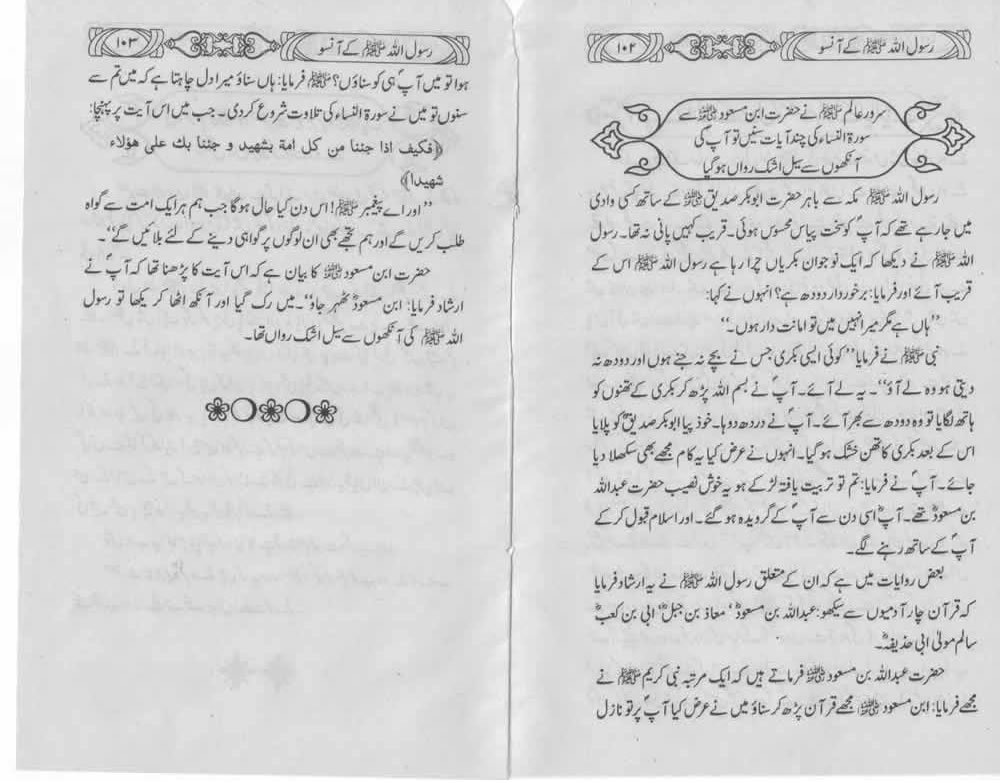 رسول اللہ ﷺ کے آنسو
۱۰۲
سرور عالم ﷺ نے حضرت ابن مسعودؓ سے
سورۃ النساء کی چند آیات سنیں تو آپ کی
آنکھوں سے سیل اشک رواں ہو گیا
رسول اللہ ﷺ مکہ سے باہر حضرت ابوبکر صدیقؓ کے ساتھ کسی وادی
میں جا رہے تھے کہ آپؐ کو سخت پیاس محسوس ہوئی۔ قریب کہیں پانی نہ تھا۔ رسول
اللہ ﷺ نے دیکھا کہ ایک نوجوان بکریاں چرا رہا ہے رسول اللہ ﷺ اس کے
قریب آئے اور فرمایا: برخوردار دودھ ہے؟ انہوں نے کہا:
”ہاں ہے مگر میرا نہیں میں تو امانت دار ہوں۔“
نبی ﷺ نے فرمایا ”کوئی ایسی بکری جس نے بچے نہ جنے ہوں اور دودھ نہ
دیتی ہو وہ لے آؤ“۔ یہ لے آئے۔ آپؐ نے بسم اللہ پڑھ کر بکری کے تھنوں کو
ہاتھ لگایا تو وہ دودھ سے بھر آئے۔ آپؐ نے دردھ دوہا۔ خود پیا ابوبکر صدیقؓ کو پلایا
اس کے بعد بکری کا تھن خشک ہو گیا۔ انہوں نے عرض کیا یہ کام مجھے بھی سکھلا دیا
جائے۔ آپؐ نے فرمایا: تم تو تربیت یافتہ لڑکے ہو یہ خوش نصیب حضرت عبداللہ
بن مسعودؓ تھے۔ آپؓ اسی دن سے آپؐ کے گرویدہ ہو گئے۔ اور اسلام قبول کر کے
آپؐ کے ساتھ رہنے لگے۔
بعض روایات میں ہے کہ ان کے متعلق رسول اللہ ﷺ نے یہ ارشاد فرمایا
کہ قرآن چار آدمیوں سے سیکھو: عبداللہ بن مسعودؓ‘ معاذ بن جبلؓ‘ ابی بن کعبؓ
سالم مولیٰ ابی حذیفہؓ۔
حضرت عبداللہ بن مسعودؓ فرماتے ہیں کہ ایک مرتبہ نبی کریم ﷺ نے
مجھے فرمایا: ابن مسعودؓ مجھے قرآن پڑھ کر سناؤ میں نے عرض کیا آپؐ پر تو نازل
رسول اللہ ﷺ کے آنسو
۱۰۳
ہوا تو میں آپؐ ہی کو سناؤں؟ ﷺ فرمایا: ہاں سناؤ میرا دل چاہتا ہے کہ میں تم سے
سنوں تو میں نے سورۃ النساء کی تلاوت شروع کر دی۔ جب میں اس آیت پر پہنچا:
﴿فکیف اذا جئنا من کل امۃ بشھید و جئنا بک علی ھؤلاء
شھیدا﴾
”اور اے پیغمبر ﷺ! اس دن کیا حال ہوگا جب ہم ہر ایک امت سے گواہ
طلب کریں گے اور ہم تجھے بھی ان لوگوں پر گواہی دینے کے لئے بلائیں گے“۔
حضرت ابن مسعودؓ کا بیان ہے کہ اس آیت کا پڑھنا تھا کہ آپؐ نے
ارشاد فرمایا: ابن مسعودؓ ٹھہر جاؤ“۔ میں رک گیا اور آنکھ اٹھا کر یکھا تو رسول
اللہ ﷺ کی آنکھوں سے سیل اشک رواں تھا۔